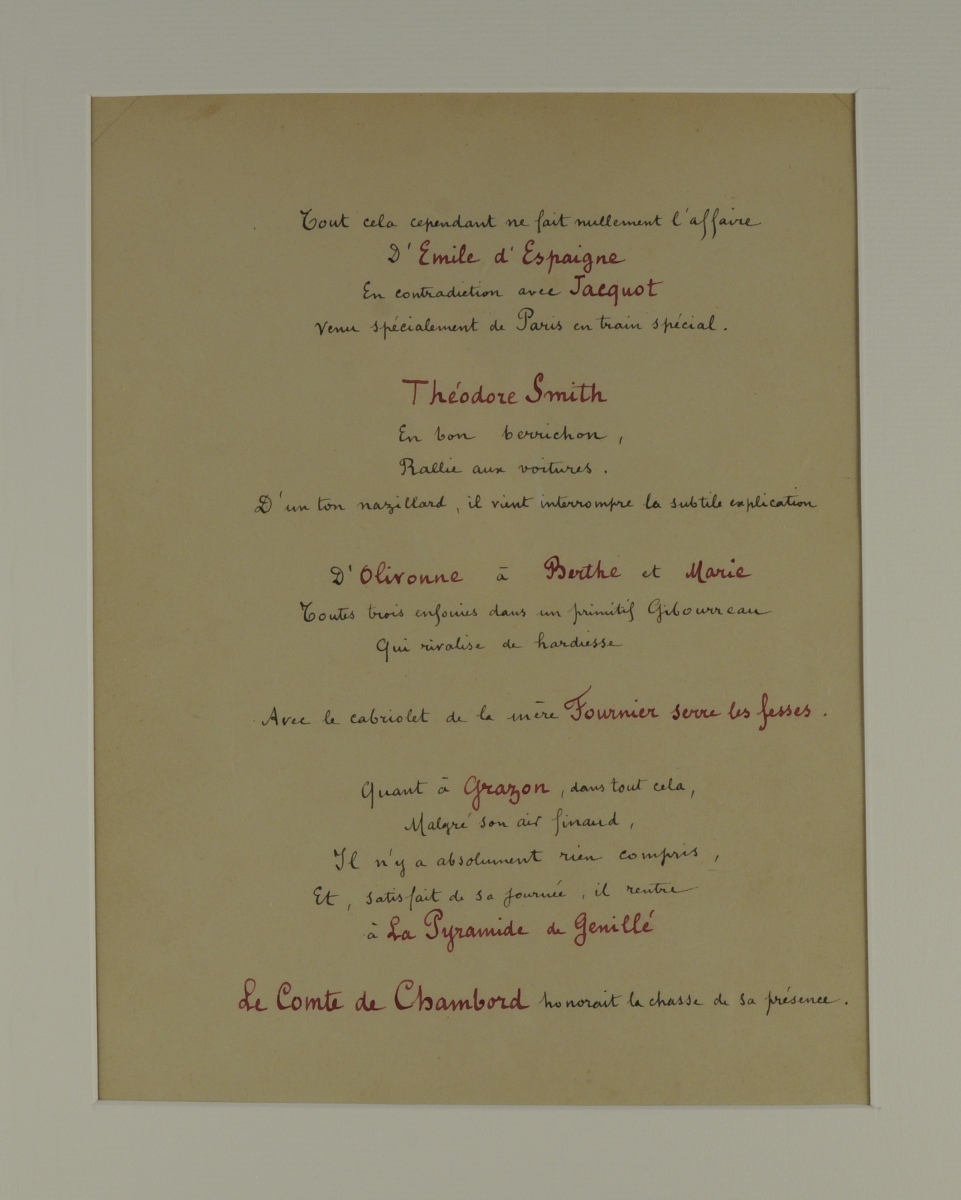 Tout cela cependant ne fait nullement l'affaire
D'Emile d'Espaigne
En contradiction avec Jacquot
Venu spécialement de Paris en train spécial.
Théodore Smith
En bon berrichon,
Rallie aux voitures.
D'un ton nazillard, il vient interrompre la subtile explication
D'Olivonne à Berthe et Marie
Toutes trois enfouies dans un primitif Gibourreau
Qui rivalise de hardiesse
Avec le cabriolet de la mère Fournier serre les fesses.
Quant à Grazon, dans tout cela,
Malgré son air finaud,
Il n'y a absolument rien compris,
Et, satisfait de sa journée, il rentre
à La Pyramide de Genillé
Le Comte de Chambord honorait la chasse de sa présence.